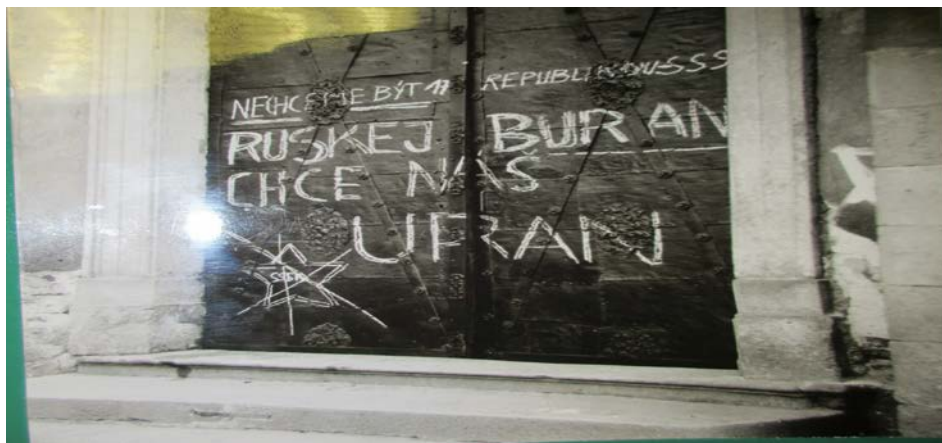 NECHCEME BÝT 17 REPUBLIKOU SSS
RUSKEJ BURAN
CHCE NÁŠ
URAN